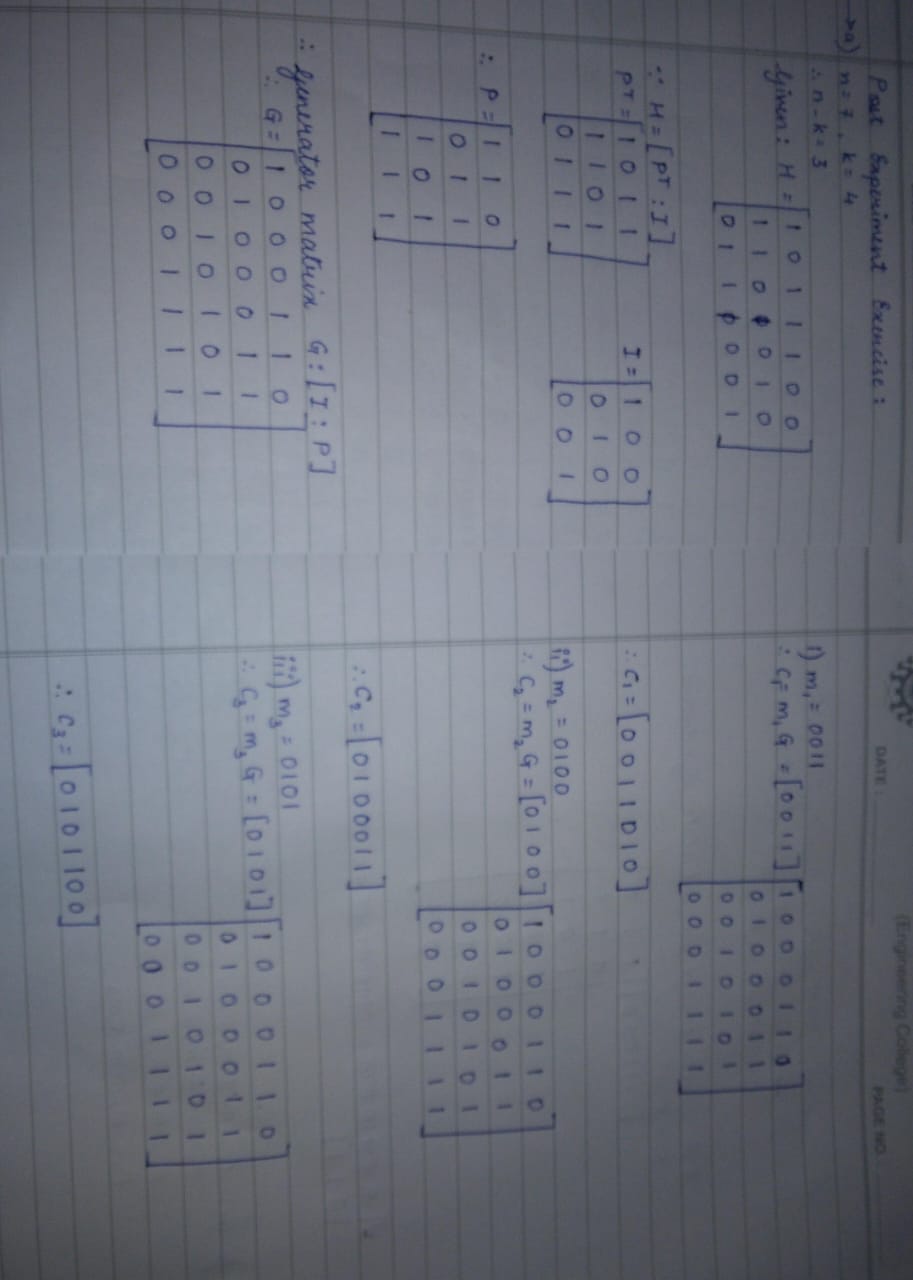 Post Experiment Exercise :
→ a) n = 7 , k = 4
∴ n - k = 3
Given : H = [1 0 1 1 1 0 0
1 1 0 1 0 1 0
0 1 1 1 0 0 1]
∵ H = [PT : I]
PT = [1 0 1 1
1 1 0 1
0 1 1 1]
I = [1 0 0
0 1 0
0 0 1]
∴ P = [1 1 0
0 1 1
1 0 1
1 1 1]
∴ Generator matrix G : [I : P]
∴ G = [1 0 0 0 1 1 0
0 1 0 0 0 1 1
0 0 1 0 1 0 1
0 0 0 1 1 1 1]
(Engineering College)
DATE :
PAGE NO.
i) m₁ = 0011
∴ C₁ = m₁ G = [0 0 1 1] [1 0 0 0 1 1 0
0 1 0 0 0 1 1
0 0 1 0 1 0 1
0 0 0 1 1 1 1]
∴ C₁ = [0 0 1 1 0 1 0]
ii) m₂ = 0100
∴ C₂ = m₂ G = [0 1 0 0] [1 0 0 0 1 1 0
0 1 0 0 0 1 1
0 0 1 0 1 0 1
0 0 0 1 1 1 1]
∴ C₂ = [0 1 0 0 0 1 1]
iii) m₃ = 0101
∴ C₃ = m₃ G = [0 1 0 1] [1 0 0 0 1 1 0
0 1 0 0 0 1 1
0 0 1 0 1 0 1
0 0 0 1 1 1 1]
∴ C₃ = [0 1 0 1 1 0 0]